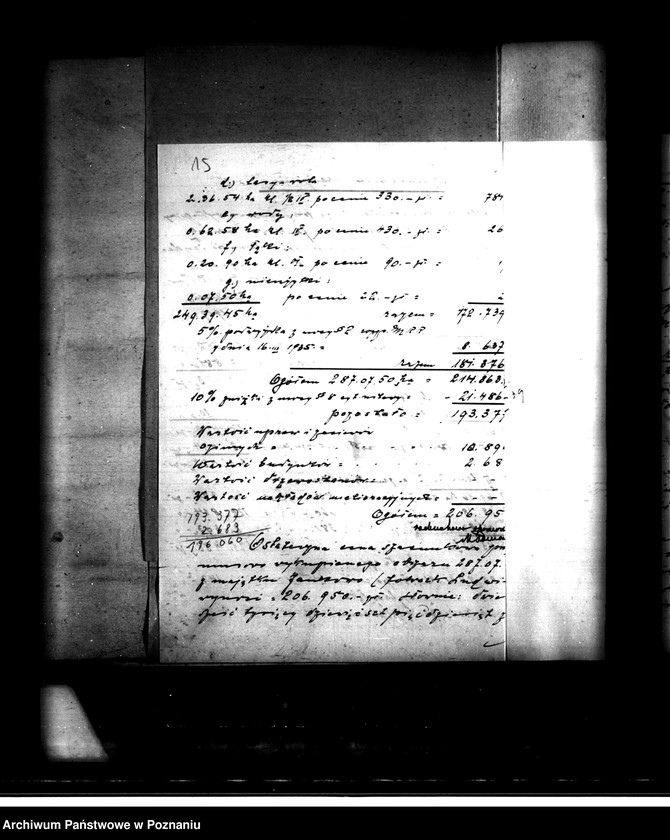 15
2.36.54 ha kl. IV po cenie 330.- zł = 781
e) wody:
0.62.58 ha kl. IV. po cenie 430.- zł = 26
f) łąki:
0.20.90 ha kl. po cenie 90.- zł =
g) nieużytki:
0.07.50 ha po cenie 22.- zł = 2
249.39.45 ha razem = 172.739
5% podwyżka z uwagi
z dnia 16.III 1935 = 8.637
razem 181.376
Ogółem 287.07.50 ha = 214.863.
10% zniżki z uwagi = - 21.486
pozostało = 193.377
Wartość upraw i zasiewów
ozimych = 10.89
Wartość budynków = 2.68
Wartość drzewostanów =
Wartość nakładów melioracyjnych = -
Ogółem = 206.95
193.377
2.683
196.060
Ostateczna cena szacunkowa
musowo wykupionego obszaru 287.07.
z majątku
wynosi 206.950.- zł słownie:
sześć tysięcy dziewięćset pięćdziesiąt z
Archiwum Państwowe w Poznaniu